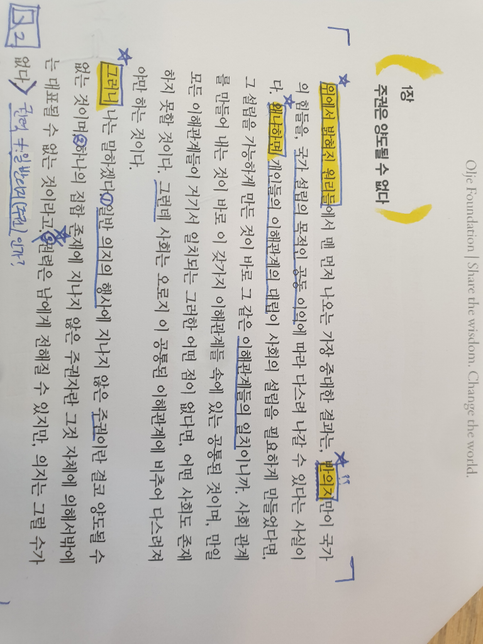 Olje Foundation | Share the wisdom. Change the world.
1장
주권은 양도될 수 없다
위에서 밝혀진 원리들에서 맨 먼저 나오는 가장 중대한 결과는, 반의지만이 국가
의 힘들을, 국가 설립의 목적인 공동 이익에 따라 다스려 나갈 수 있다는 사실이
다. 왜냐하면 개인들의 이해관계의 대립이 사회의 설립을 필요하게 만들었다면,
그 설립을 가능하게 만든 것이 바로 그 같은 이해관계들의 일치이니까. 사회 관계
를 만들어 내는 것이 바로 이 갖가지 이해관계들 속에 있는 공통된 것이며, 만일
모든 이해관계들이 거기서 일치되는 그러한 어떤 점이 없다면, 어떤 사회도 존재
하지 못할 것이다. 그런데 사회는 오로지 이 공통된 이해관계에 비추어 다스려져
야만 하는 것이다.
그러니 나는 말하겠다. ① 일반 의지의 행사에 지나지 않은 주권이란 결코 양도될 수
없는 것이며 ② 하나의 집합 존재에 지나지 않은 주권자란 그것 자체에 의해서밖에
는 대표될 수 없는 것이라고. ③ 권력은 남에게 전해질 수 있지만, 의지는 그럴 수가
없다. 권력 ≠ 일반의지(주권)인가?